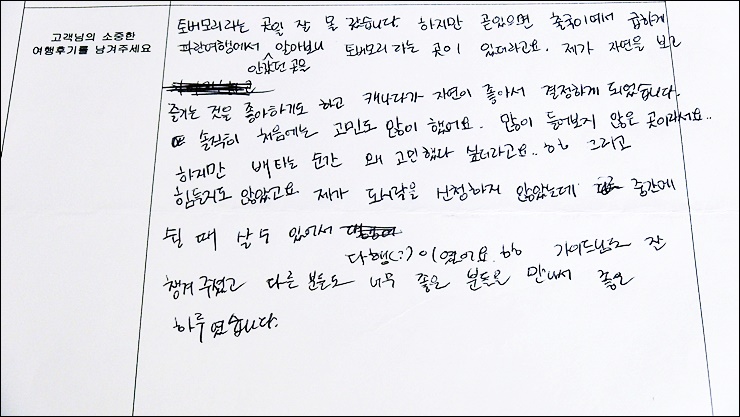 고객님의 소중한
여행후기를 남겨주세요
토버모리라는 곳일 잘 몰랐습니다 하지만 곧있으면 출국이에서 급하게
파란여행에서 알아보니 토버모리 라는 곳이 있더라고요. 제가 자연을 보고
안갔던 곳을
즐기는 것을 좋아하기도 하고 캐나다가 자연이 좋아서 결정하게 되었습니다.
솔직히 처음에는 고민도 많이 했어요. 많이 들어보지 않은 곳이라서요..
하지만 배타는 순간 왜 고민했다 싶더라고요.. ㅎㅎ 그리고
힘들지도 않았고요. 제가 도시락을 선정하지 않았는데 중간에
쉴 때 살 수 있어서
다행(:)이였어요. ㅎㅎ 가이드님도 잘
챙겨 주셨고 다른 분들도 너무 좋은 분들을 만나서 좋은
하루 였습니다.